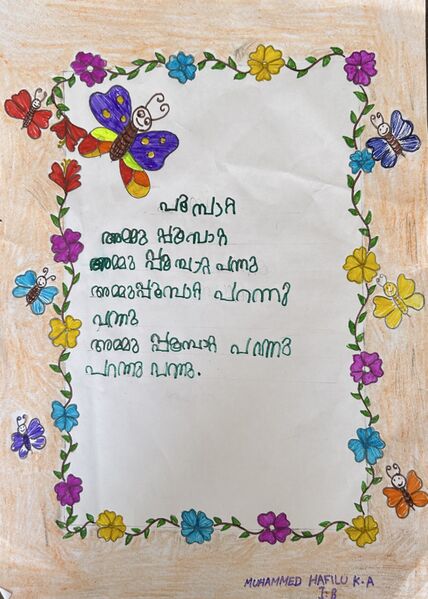 പൂമ്പാറ്റ
അമ്മു പ്പൂമ്പാറ്റ
അമ്മു പ്പൂമ്പാറ്റ വന്നു
അമ്മുപ്പൂമ്പാറ്റ പറന്നു
വന്നു
അമ്മു പ്പൂമ്പാറ്റ പറന്നു
പറന്നു വന്നു.
MUHAMMED HAFILU K.A
I-B